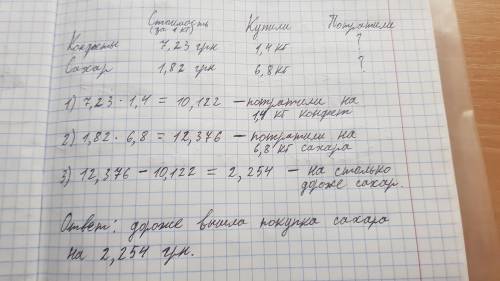 Стоимость Купили Потратили
(за 1 кг)
Конфеты 7,23 грн 1,4 кг ?
Сахар 1,82 грн 6,8 кг ?
1) 7,23 · 1,4 = 10,122 – потратили на
1,4 кг конфет
2) 1,82 · 6,8 = 12,376 – потратили на
6,8 кг сахара
3) 12,376 – 10,122 = 2,254 – на столько
дороже сахар.
Ответ: дороже вышла покупка сахара
на 2,254 грн.